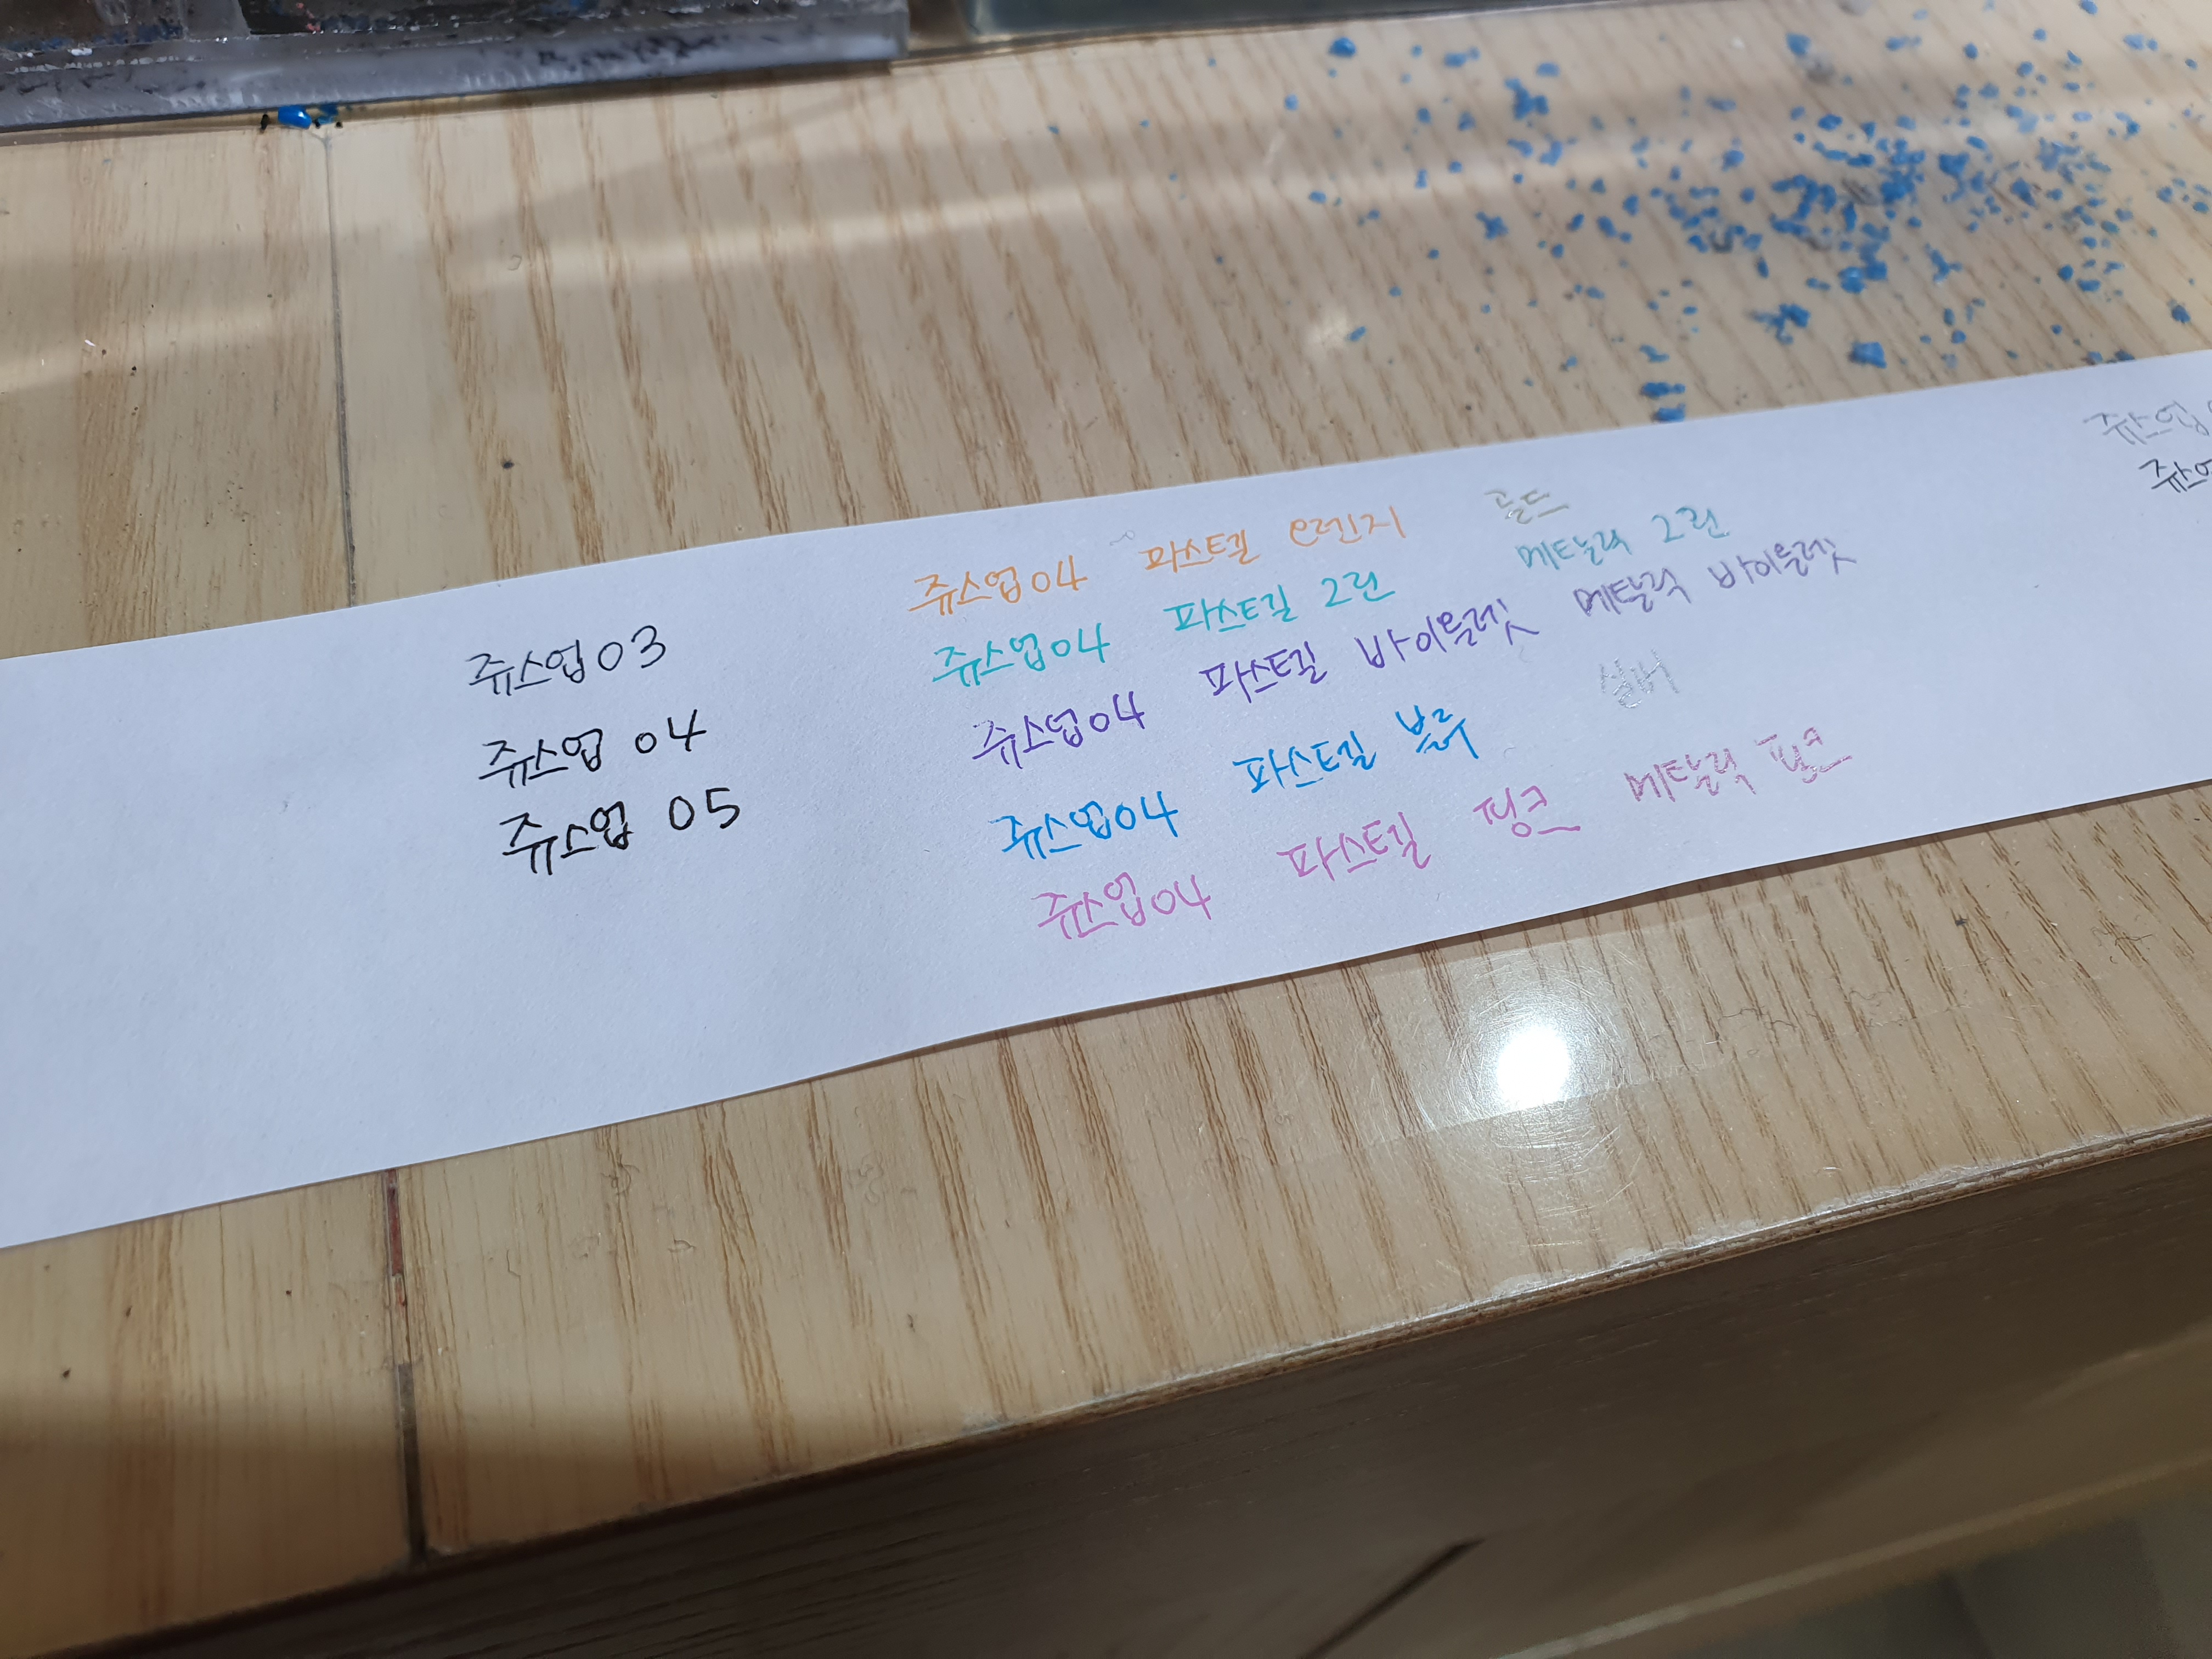 쥬스업03
쥬스업 04
쥬스업 05
쥬스업04 파스텔 오렌지
쥬스업04 파스텔 그린
쥬스업04 파스텔 바이올렛
쥬스업04 파스텔 블루
쥬스업04 파스텔 핑크
골드
메탈릭 그린
메탈릭 바이올렛
실버
메탈릭 핑크
쥬스업